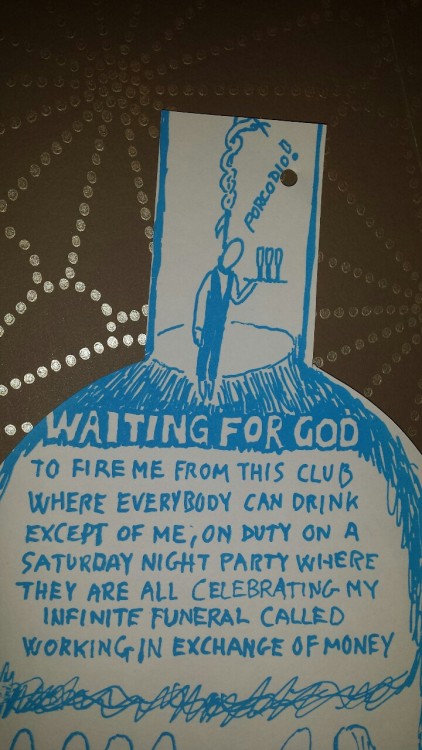 PORCODIO!!
WAITING FOR GOD
TO FIRE ME FROM THIS CLUB
WHERE EVERYBODY CAN DRINK
EXCEPT OF ME, ON DUTY ON A
SATURDAY NIGHT PARTY WHERE
THEY ARE ALL CELEBRATING MY
INFINITE FUNERAL CALLED
WORKING IN EXCHANGE OF MONEY